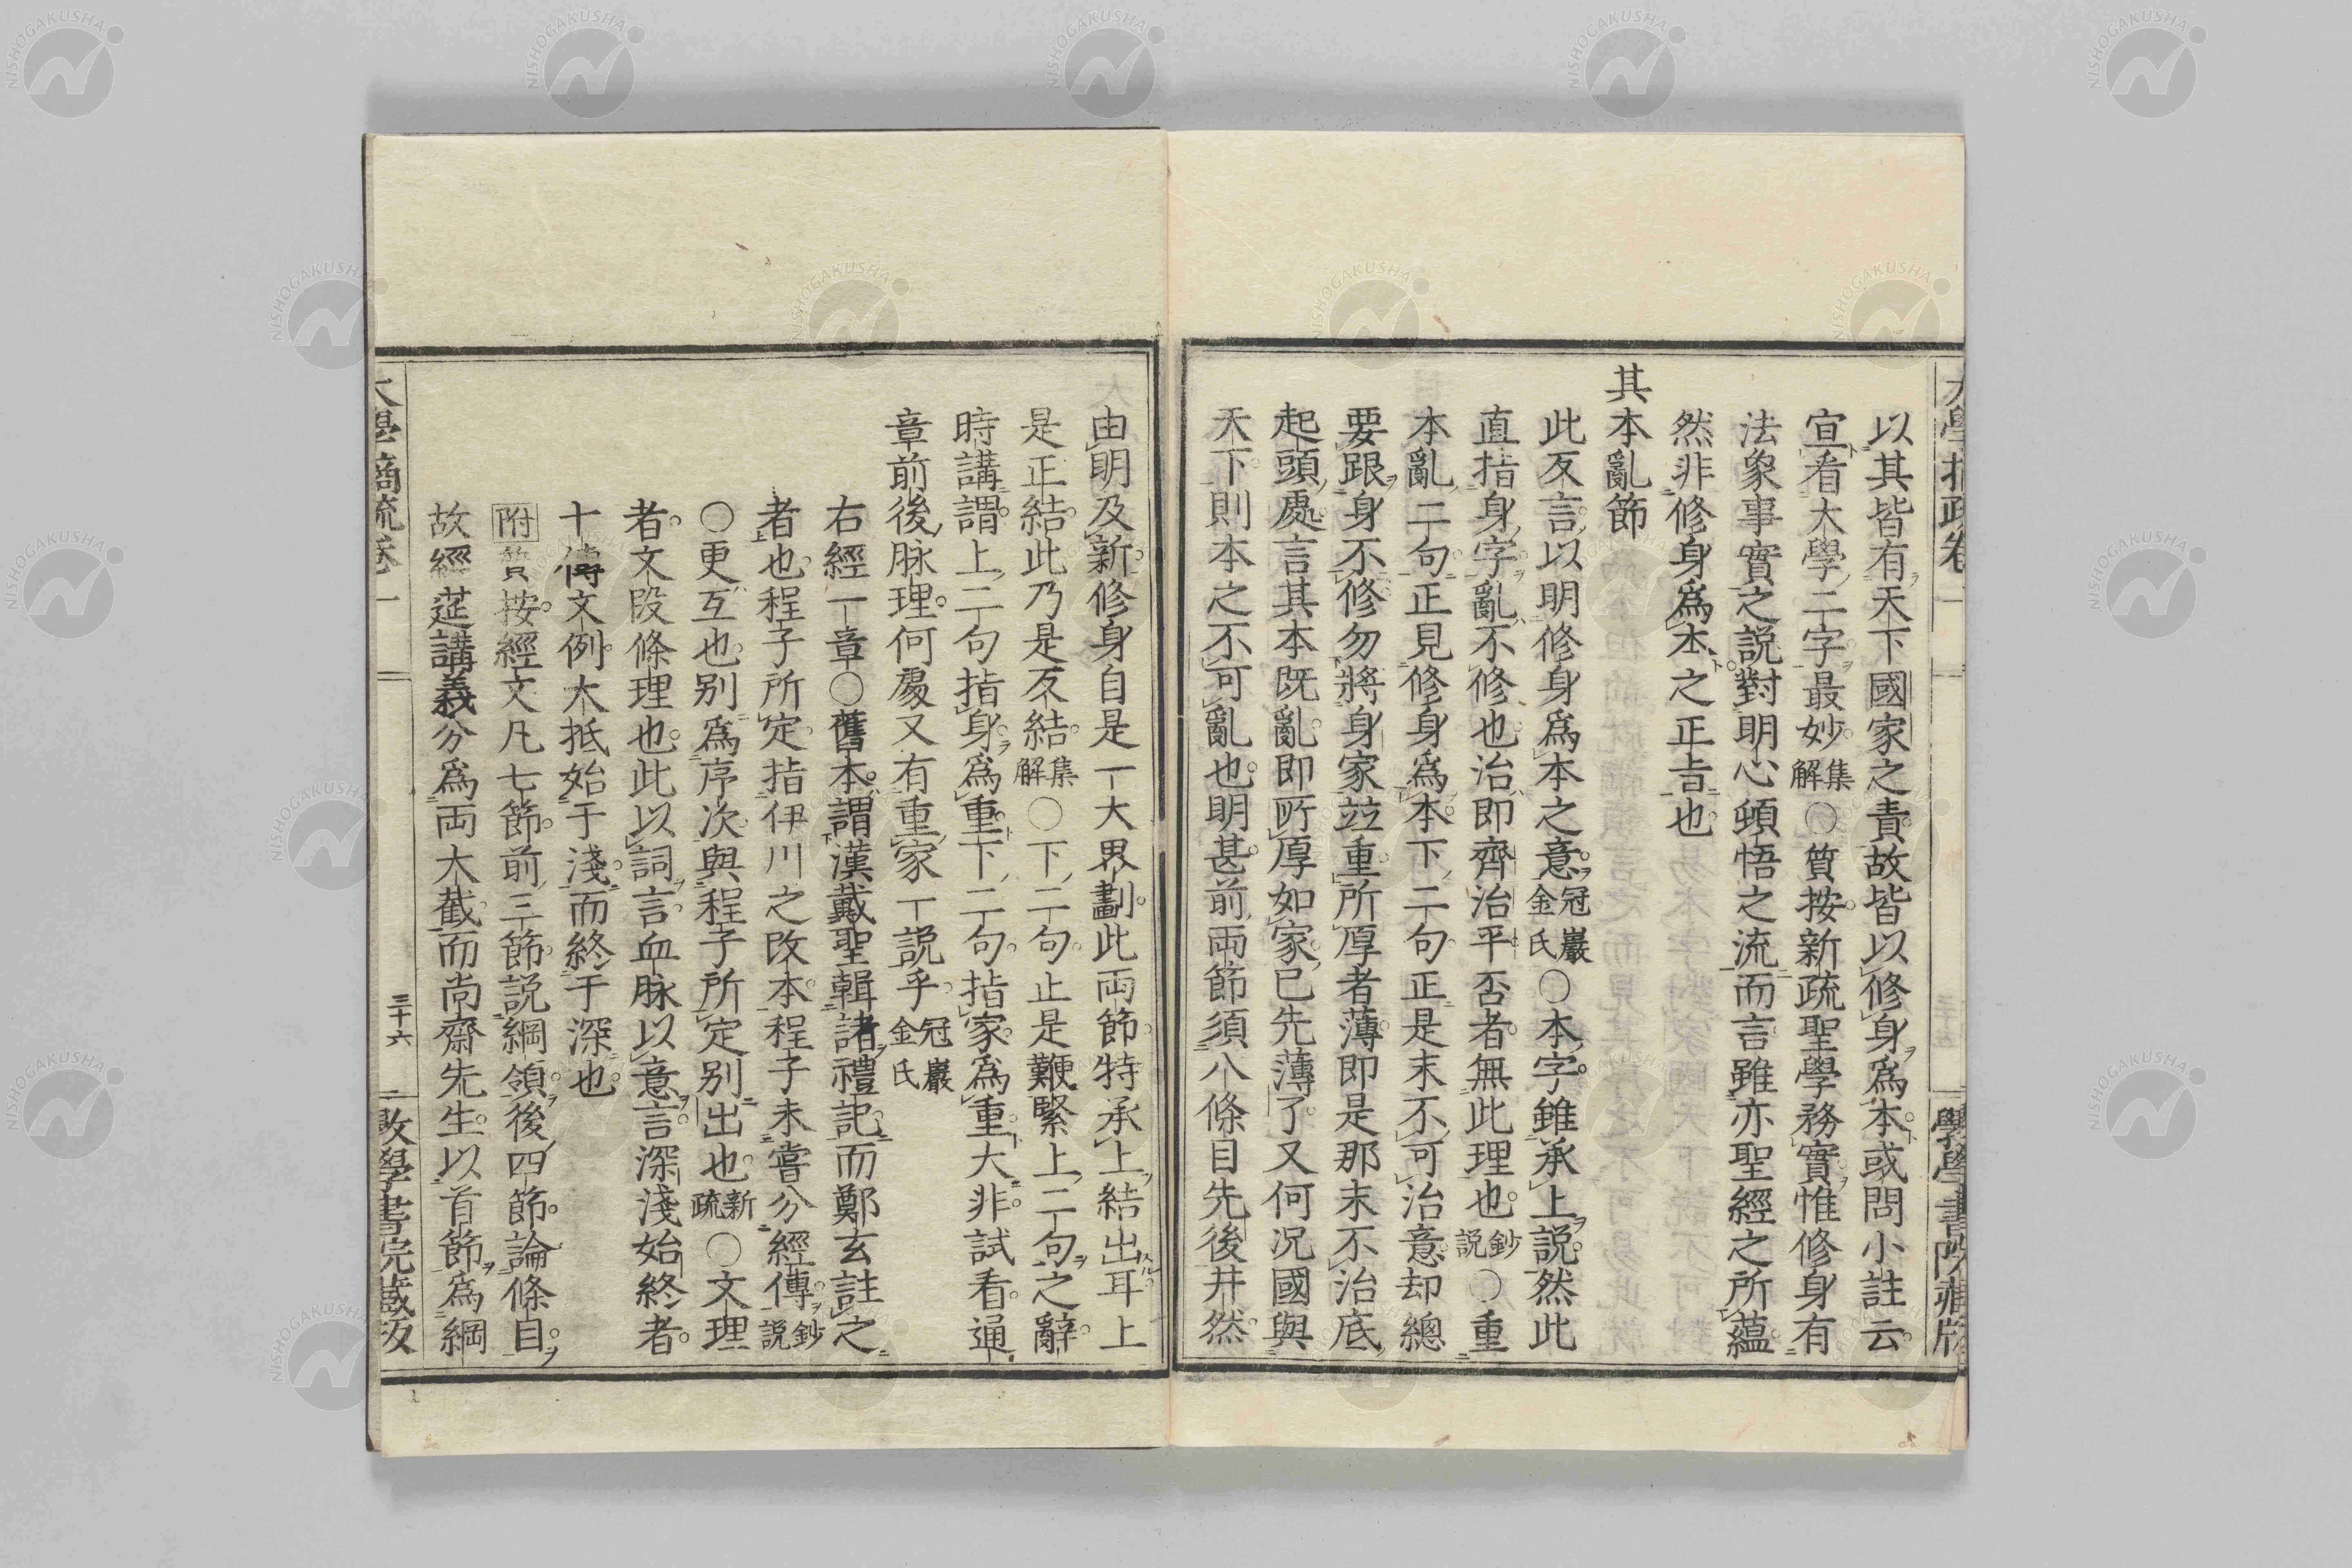 以其皆有天下國家之責故皆以修身爲本或問小註云
宣看大學二字最妙集解○質按新疏聖學務實惟修身有
法象事實之説對明心頓悟之流而言雖亦聖經之所蘊
然非修身爲本之正旨也
其本亂節
此反言以明修身爲本之意冠巖金氏○本字雖承上説然此
直指身字亂不修也治即齊治平否者無此理也鈔説○重
本亂二句正見修身爲本下二句正是末不可治意却總
要跟身不修勿將身家竝重所厚者薄即是那末不治底
起頭處言其本既亂即所厚如家已先薄了又何況國與
天下則本之不可亂也明甚前兩節須八條目先後井然
由明及新修身自是一大界劃此兩節特承上結出耳上
是正結此乃是反結集解○下二句止是鞭緊上二句之辭
時講謂上二句指身爲重下二句指家爲重大非試看通
章前後脉理何處又有重家一説乎冠巖金氏
右經一章○舊本謂漢戴聖輯諸禮記而鄭玄註之
者也程子所定指伊川之改本程子未嘗分經傳鈔説
○更互也別爲序次與程子所定別出也新疏○文理
者文段條理也此以詞言血脉以意言深淺始終者
十傳文例大抵始于淺而終于深也
附質按經文凡七節前三節説綱領後四節論條目
故經莚講義分爲両大截而尚齋先生以首節爲綱
大學摘疏卷一 三十六 斅學書院藏版